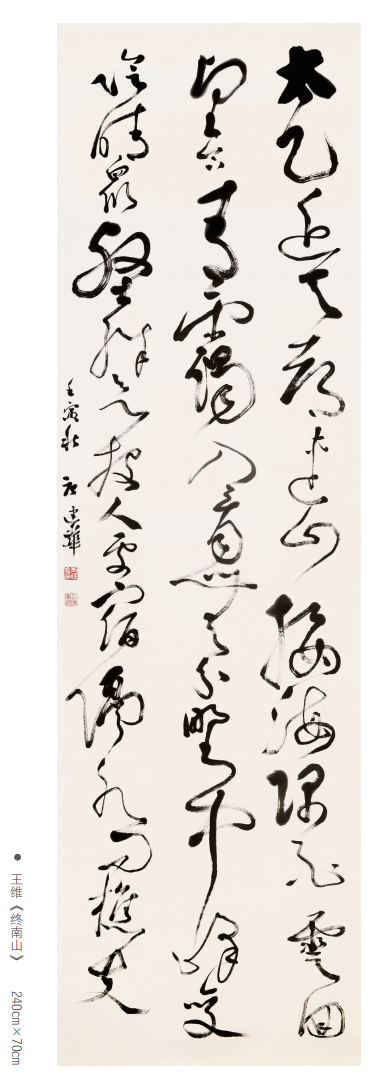 太乙近天都連山接海隅白雲回
望合青靄入看無分野中峰變
陰晴眾壑殊欲投人處宿隔水問樵夫
壬寅秋 建華
王维《终南山》 240cm×70cm